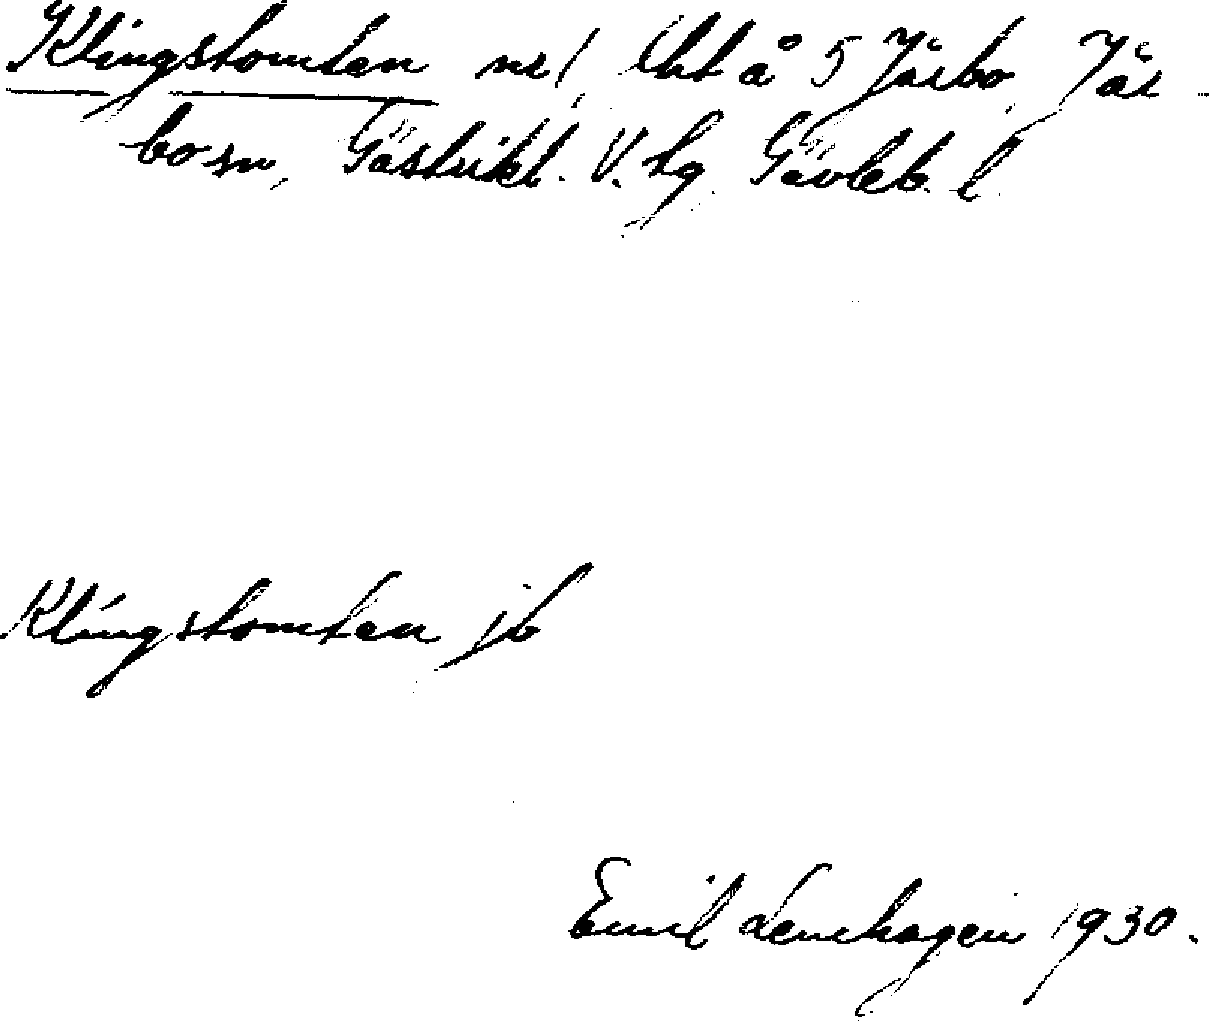 Klingstomten nr 1, lht å 5 Järbo, Jär-
bo sn, Gästrikl. V. tg. Gävleb. l.
Klingstomten jb
Emil Lenhagen 1930.